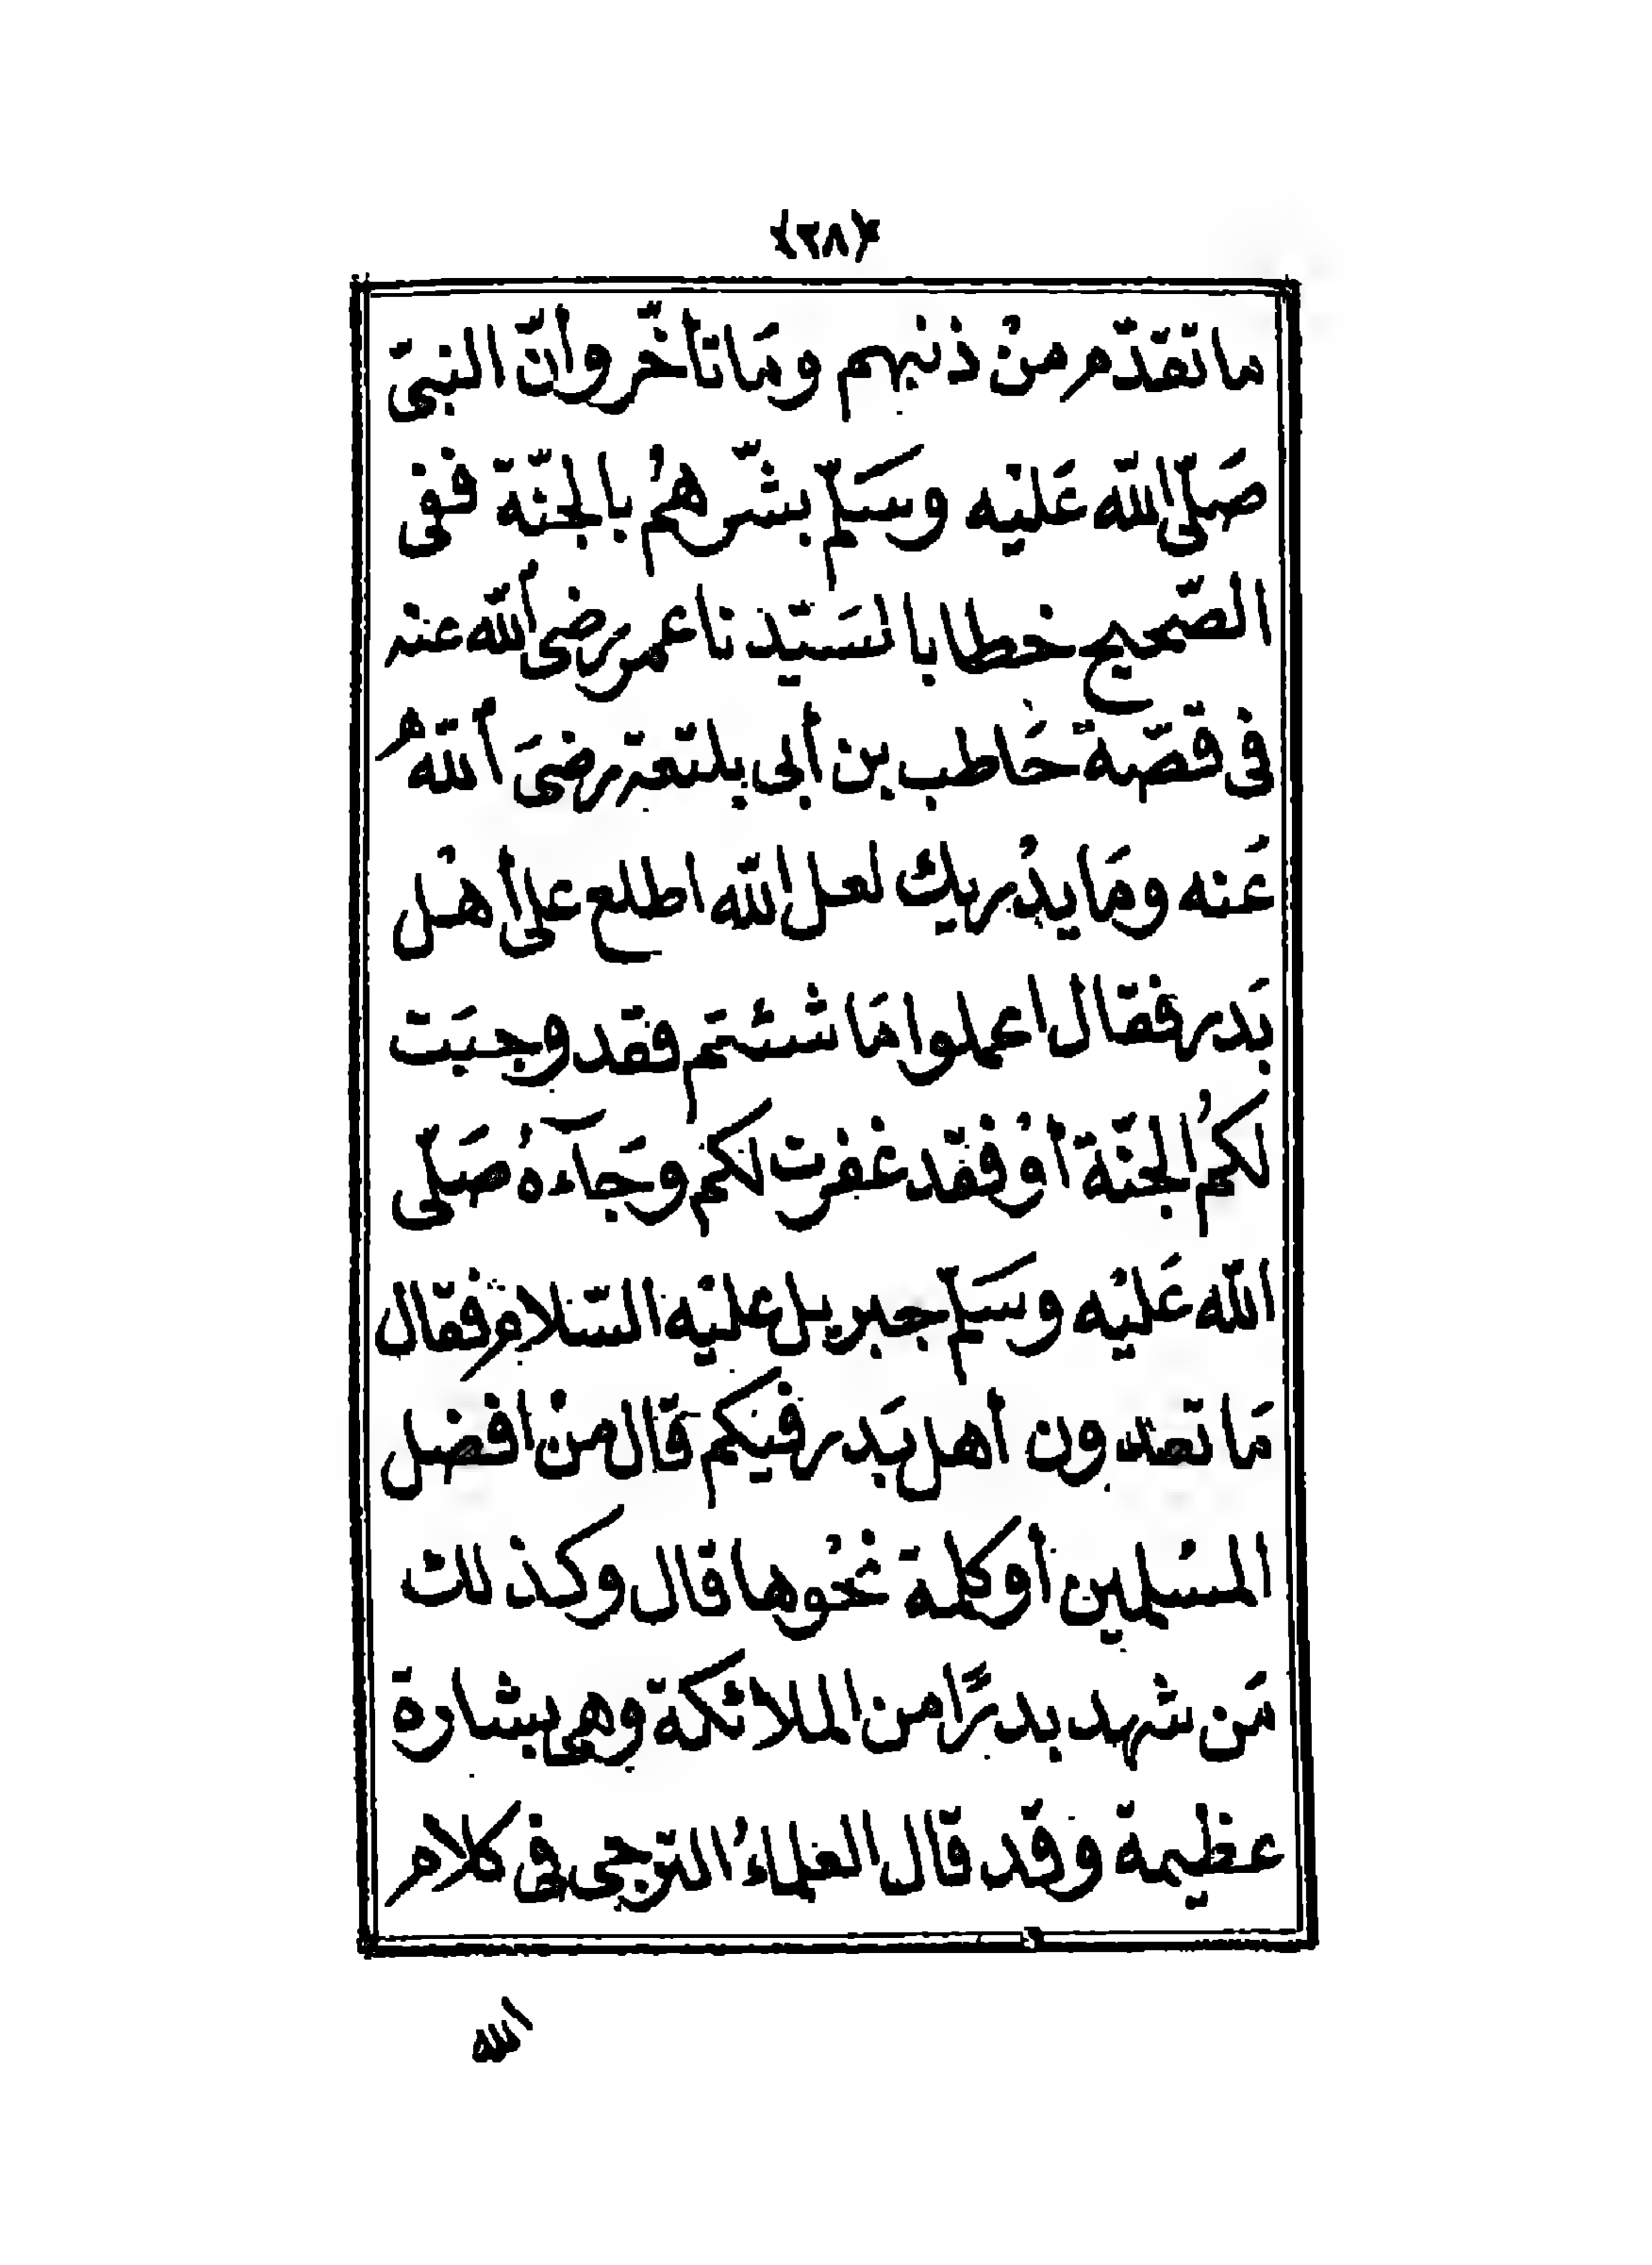 ﴿٢٨﴾
ما تقدّم منْ ذنبهم ومَا تأخّر وأنّ النبىّ
صَلّى الله عَليْه وسَلّم بشّرهمُ بالجنّة ففى
الصّحيح خطابا لسَيّدنا عمر رضى ألله عنه
فى قصّة حَاطب بن أبى بلتعة رضىَ ألله
عَنه ومَا يدْريك لعل الله اطلع على أهْل
بَدر فقال اعملوا مَا شئتم فقد وجبَت
لكمُ الجنّة أوْ فقد غفرت لكم وجَآءهُ صَلّى
الله عَليْه وسَلّم جبريل عليْه السّلام فقال
مَا تعدون أهل بَدر فيكم قال منْ افضل
المسْلمين أو كلمة نحْوها قال وكذلك
مَن شهد بدرًا من الملائكة وهى بشارة
عظيمة وقد قال العلماءُ الترجى فى كلام
الله